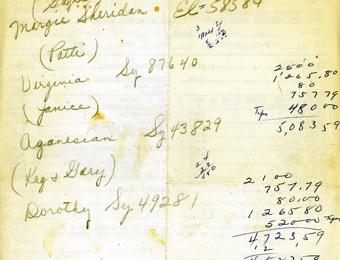 Margie Sheridan El=58584
(Patti)
Virginia Sy 87640
(Janice)
Aganesian Sy 43829
(Reg & Gary)
Dorothy Sy 49281
2000
1265.80
80
757 79
48000
5,083 59
2100
757.79
80.00
1 265 80
52000
4723,59
12